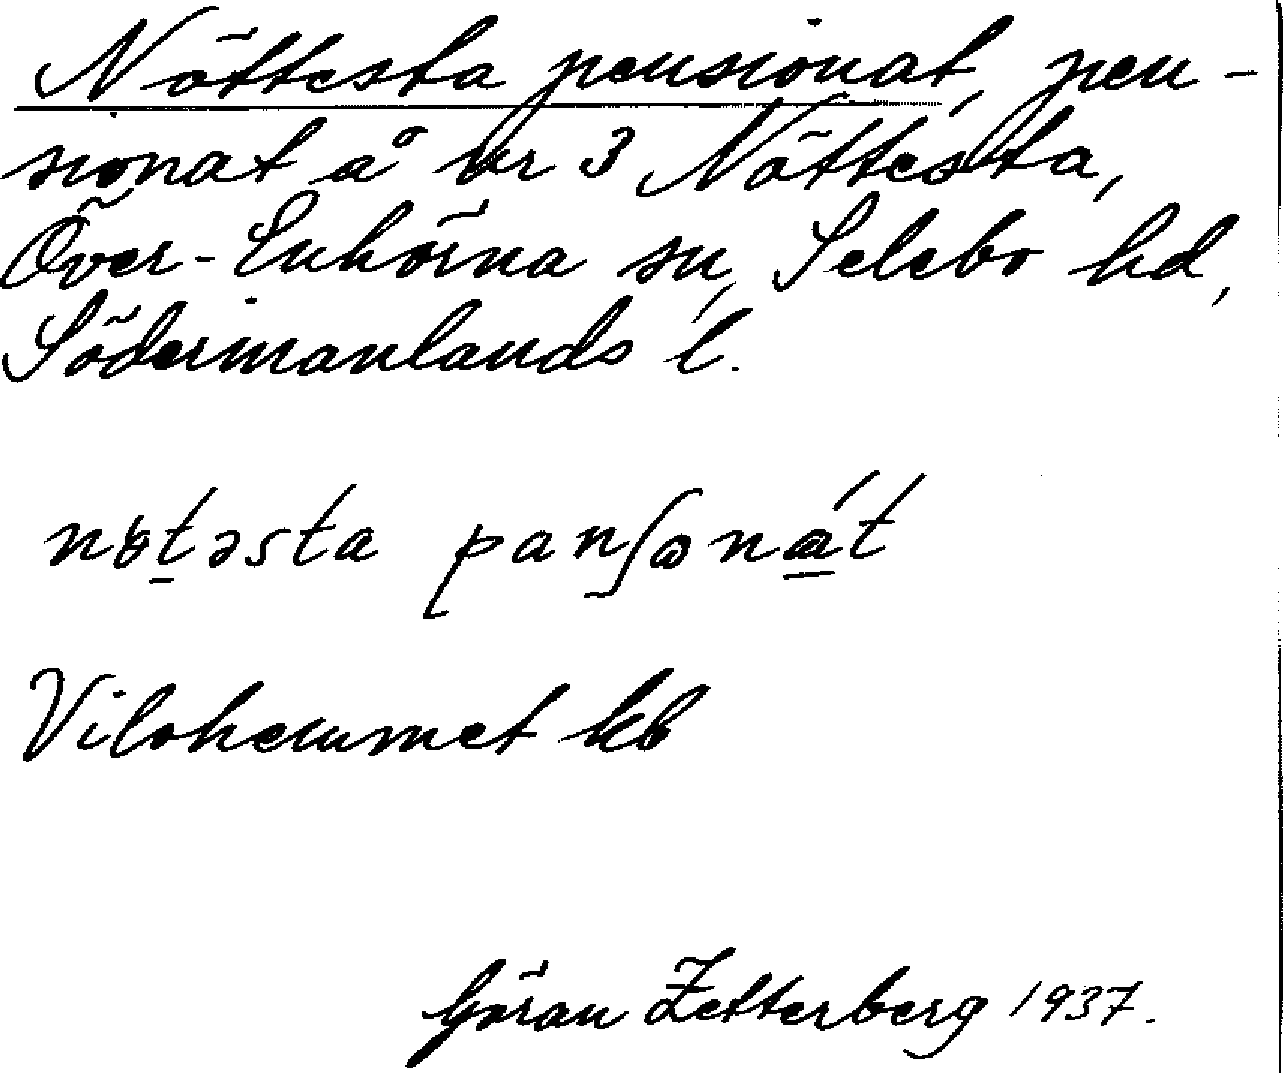 Nöttesta pensionat, pen-
sionat å nr 3 Nöttesta,
Över-Enhörna sn, Selebo hd,
Södermanlands l.
nøt̲əsta panʃɷná̲t
Vilohemmet kb
Göran Zetterberg 1937.